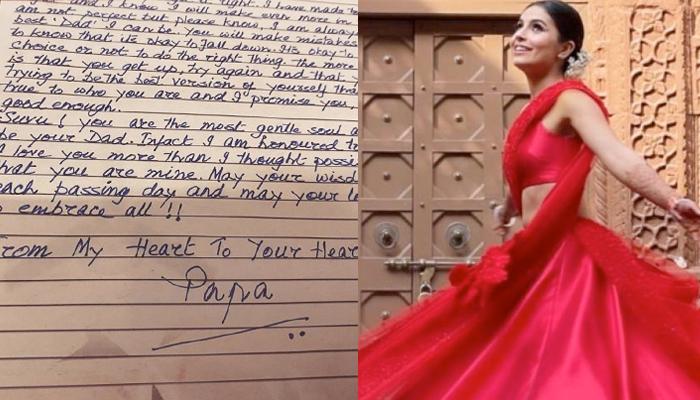 it right. I have made
and I know I will make even more m
am not perfect but please know, I am alway
best 'Dad' I can be. You will make mistakes
to know that its okay to fall down. It's okay to
choice or not to do the right thing. The more
is that you get up, try again and that
trying to be the best version of yourself tha
true to who you are and I promise you,
good enough.
Suvu! you are the most gentle soul a
be your Dad. Infact I am honoured t
I love you more than I thought possi
that you are mine. May your wisd
each passing day and may your
embrace all!!
From My Heart To Your Hear
Papa